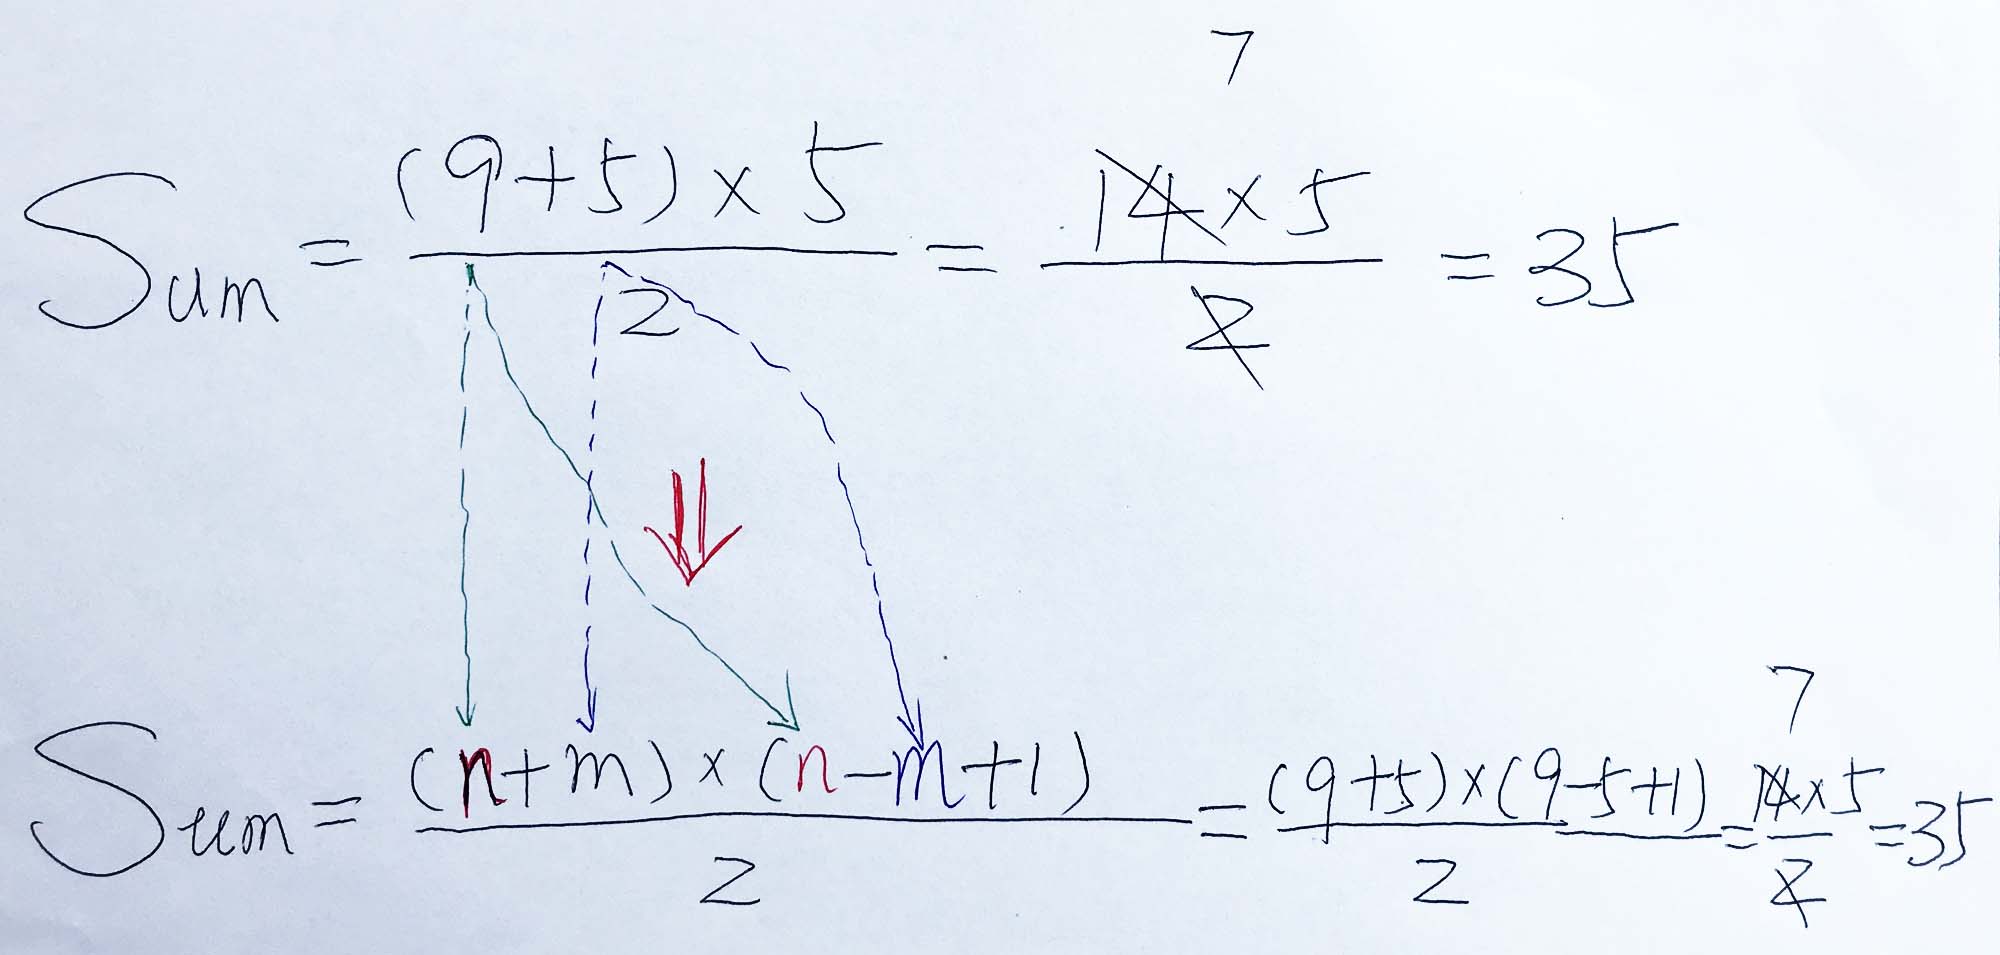 7
Sum = (9+5) × 5 / 2 = 14 × 5 / 2 = 35
7
Sum = (n+m) × (n−m+1) / 2 = (9+5) × (9−5+1) / 2 = 14 × 5 / 2 = 35